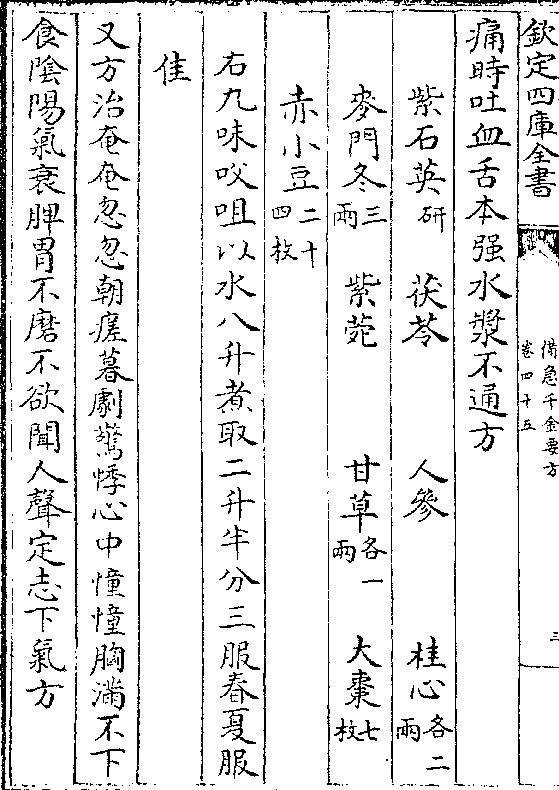 欽定四庫全書
備急千金要方
卷四十五
三
痛時吐血舌本强水漿不通方
紫石英研 茯苓 人參 桂心各二兩
麥門冬三兩 紫菀 甘草各一兩 大棗七枚
赤小豆二十四枚
右九味㕮咀以水八升煮取二升半分三服春夏服
佳
又方治奄奄忽忽朝瘥暮劇驚悸心中憧憧胸滿不下
食隂陽氣衰脾胃不磨不欲聞人聲定志下氣方